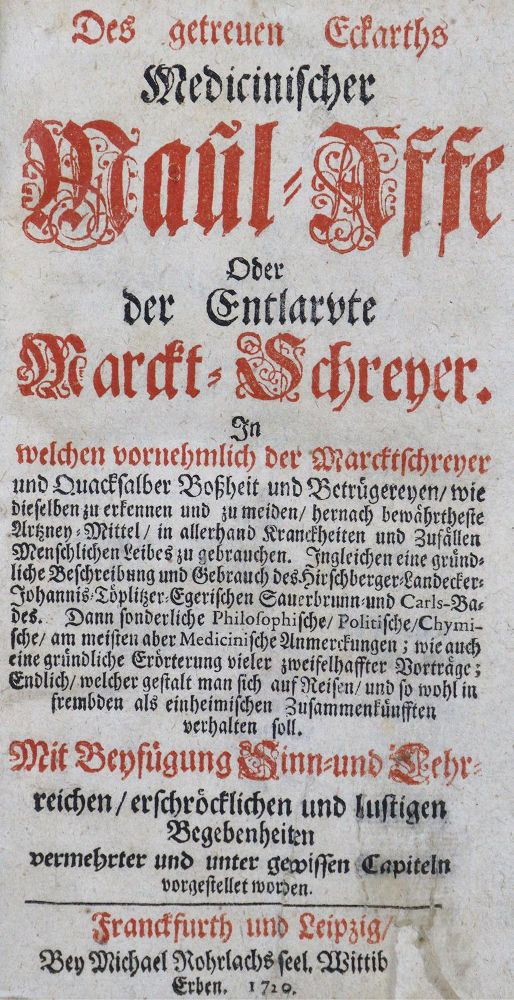 Des getreuen Eckarths
Medicinischer
Maül-Affe
Oder
der Entlarvte
Marckt-Schreyer.
In
welchen vornehmlich der Marcktschreyer
und Quacksalber Boßheit und Betrügereyen/ wie
dieselben zu erkennen und zu meiden/ hernach bewährtheste
Artzney-Mittel/ in allerhand Kranckheiten und Zufällen
Menschlichen Leibes zu gebrauchen. Ingleichen eine gründ-
liche Beschreibung und Gebrauch des Hirschberger-Landecker-
Johannis-Töplitzer-Egerischen Sauerbrunn-und Carls-Ba-
des. Dann sonderliche Philosophische/ Politische/ Chymi-
sche/ am meisten aber Medicinische Anmerckungen; wie auch
eine gründliche Erörterung vieler zweifelhaffter Vorträge;
Endlich/ welcher gestalt man sich auf Reisen/ und so wohl in
frembden als einheimischen Zusammenkünfften
verhalten soll.
Mit Beyfügung Sinn-und Lehr-
reichen/ erschröcklichen und lustigen
Begebenheiten
vermehrter und unter gewissen Capiteln
vorgestellet worden.
Franckfurth und Leipzig/
Bey Michael Rohrlachs seel. Wittib
Erben. 1720.